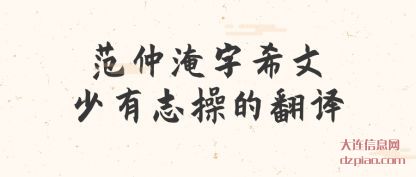 范仲淹字希文
少有志操的翻译
大连信息网
dzpiao.com